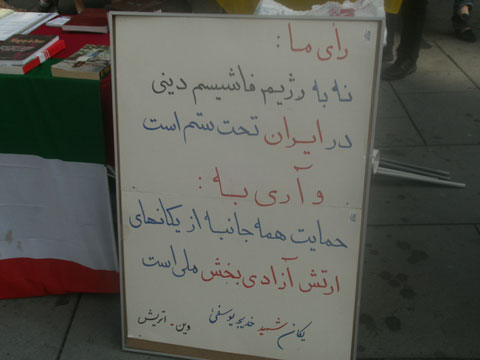 رأی ما :
نه به رژیم فاشیسم دینی
در ایران تحت ستم است
و آری به :
حمایت همه جانبه از یکانهای
ارتش آزادی بخش ملی است
یکان شهید خدیجه یوسفی
وین - اتریش